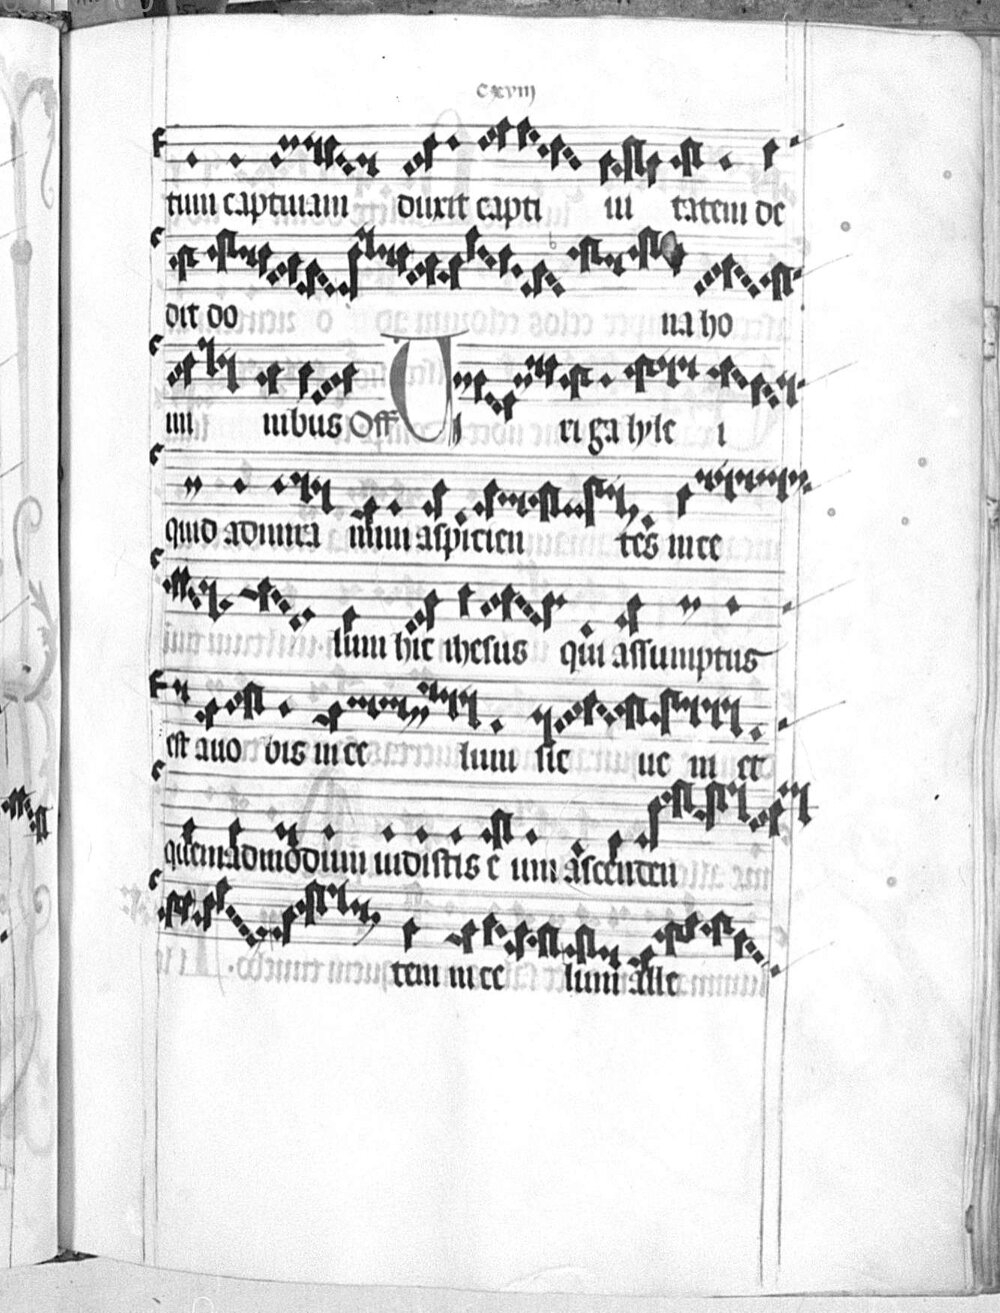 cxviij
tum captiuam duxit capti ui tatem de
dit do na ho
mi nibus Off Ui ri ga lyle i
quid admira mini aspicien tes in ce
lum hic ihesus qui assumptus
est auo bis in ce lum sic ue ni et
quemadmodum uidistis e um ascenden
tem in ce lum alle